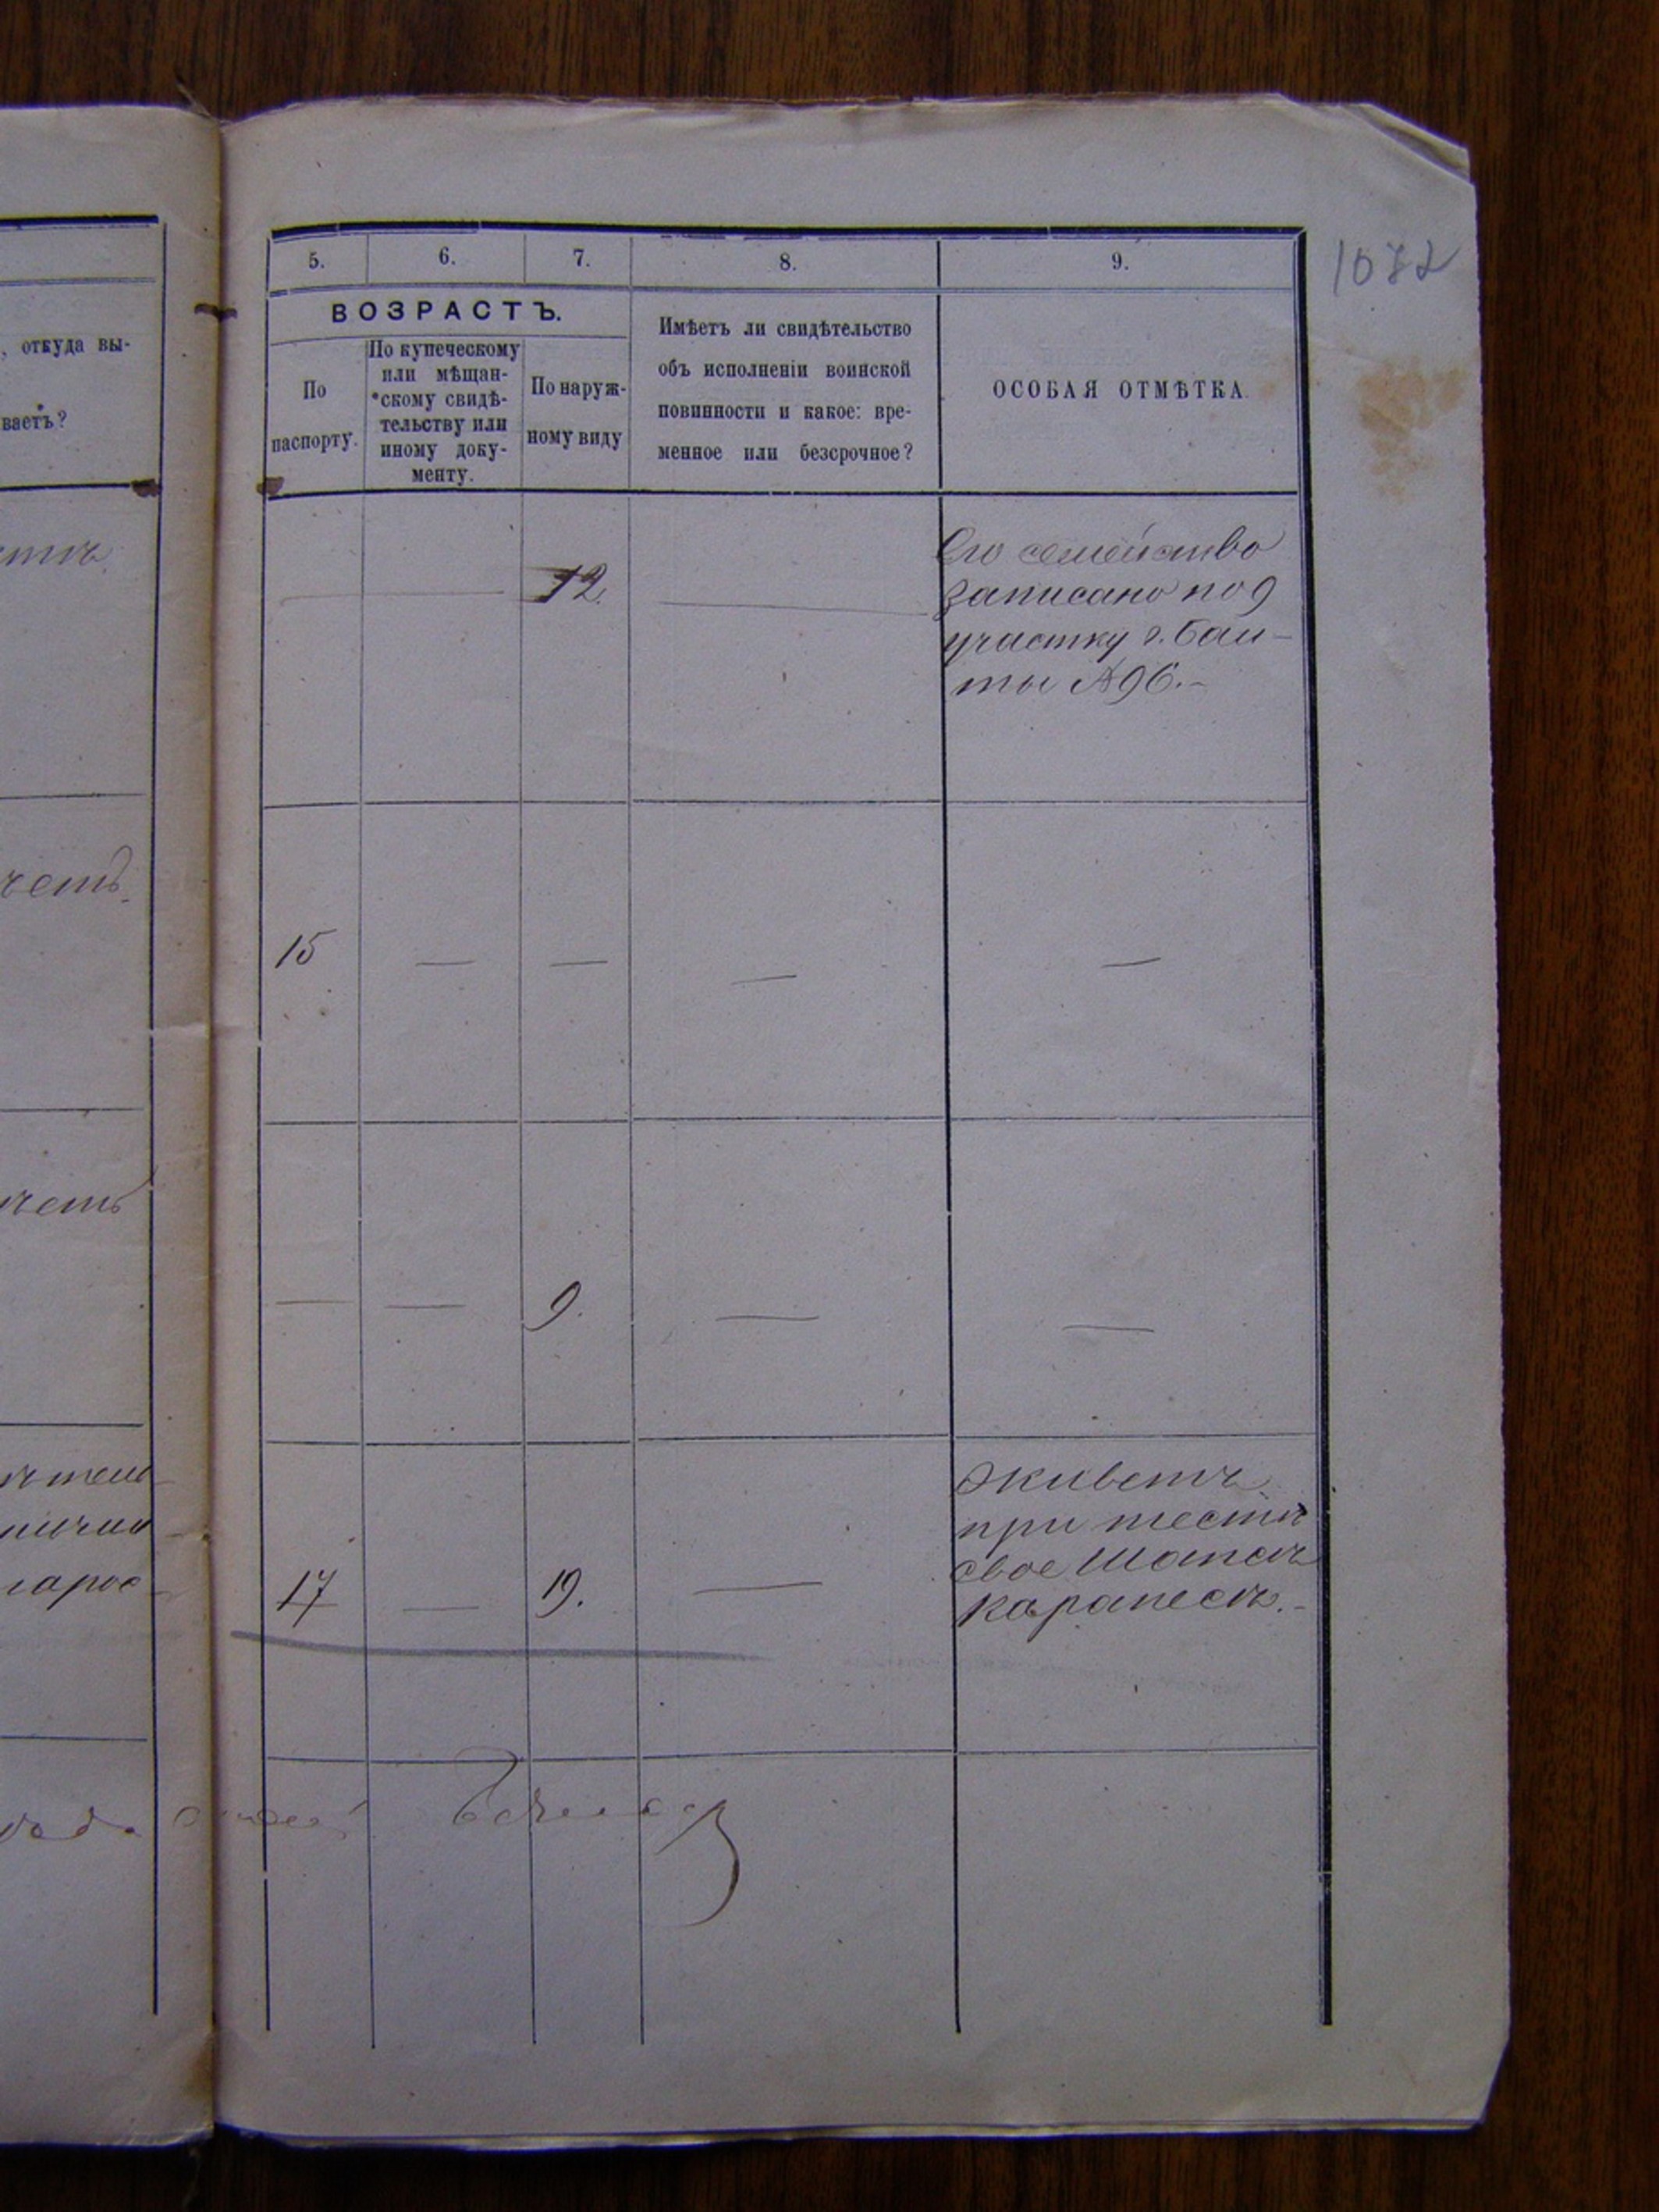 1072
, откуда вы-
ваетъ?
5. 6. 7. 8. 9.
ВОЗРАСТЪ.
По
паспорту.
По купеческому
или мѣщан-
скому свидѣ-
тельству или
иному доку-
менту.
По наруж-
ному виду
Имѣетъ ли свидѣтельство
объ исполненіи воинской
повинности и какое: вре-
менное или безсрочное?
ОСОБАЯ ОТМѢТКА.
— 12. —
Его семейство
записано по 9
участку г. Бал-
ты № 96.-
четъ
15 — — — —
четъ
— — 9. — —
17 — 19. —
Живетъ
при тестѣ
свое